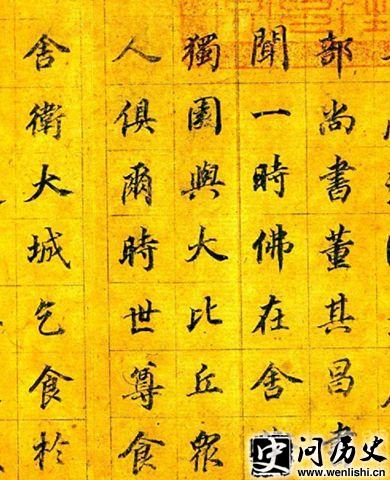 部尚書董其昌
聞一時佛在舍
獨園與大比丘衆
人俱爾時世尊食
舍衛大城乞食於
问历史
www.wenlishi.cn